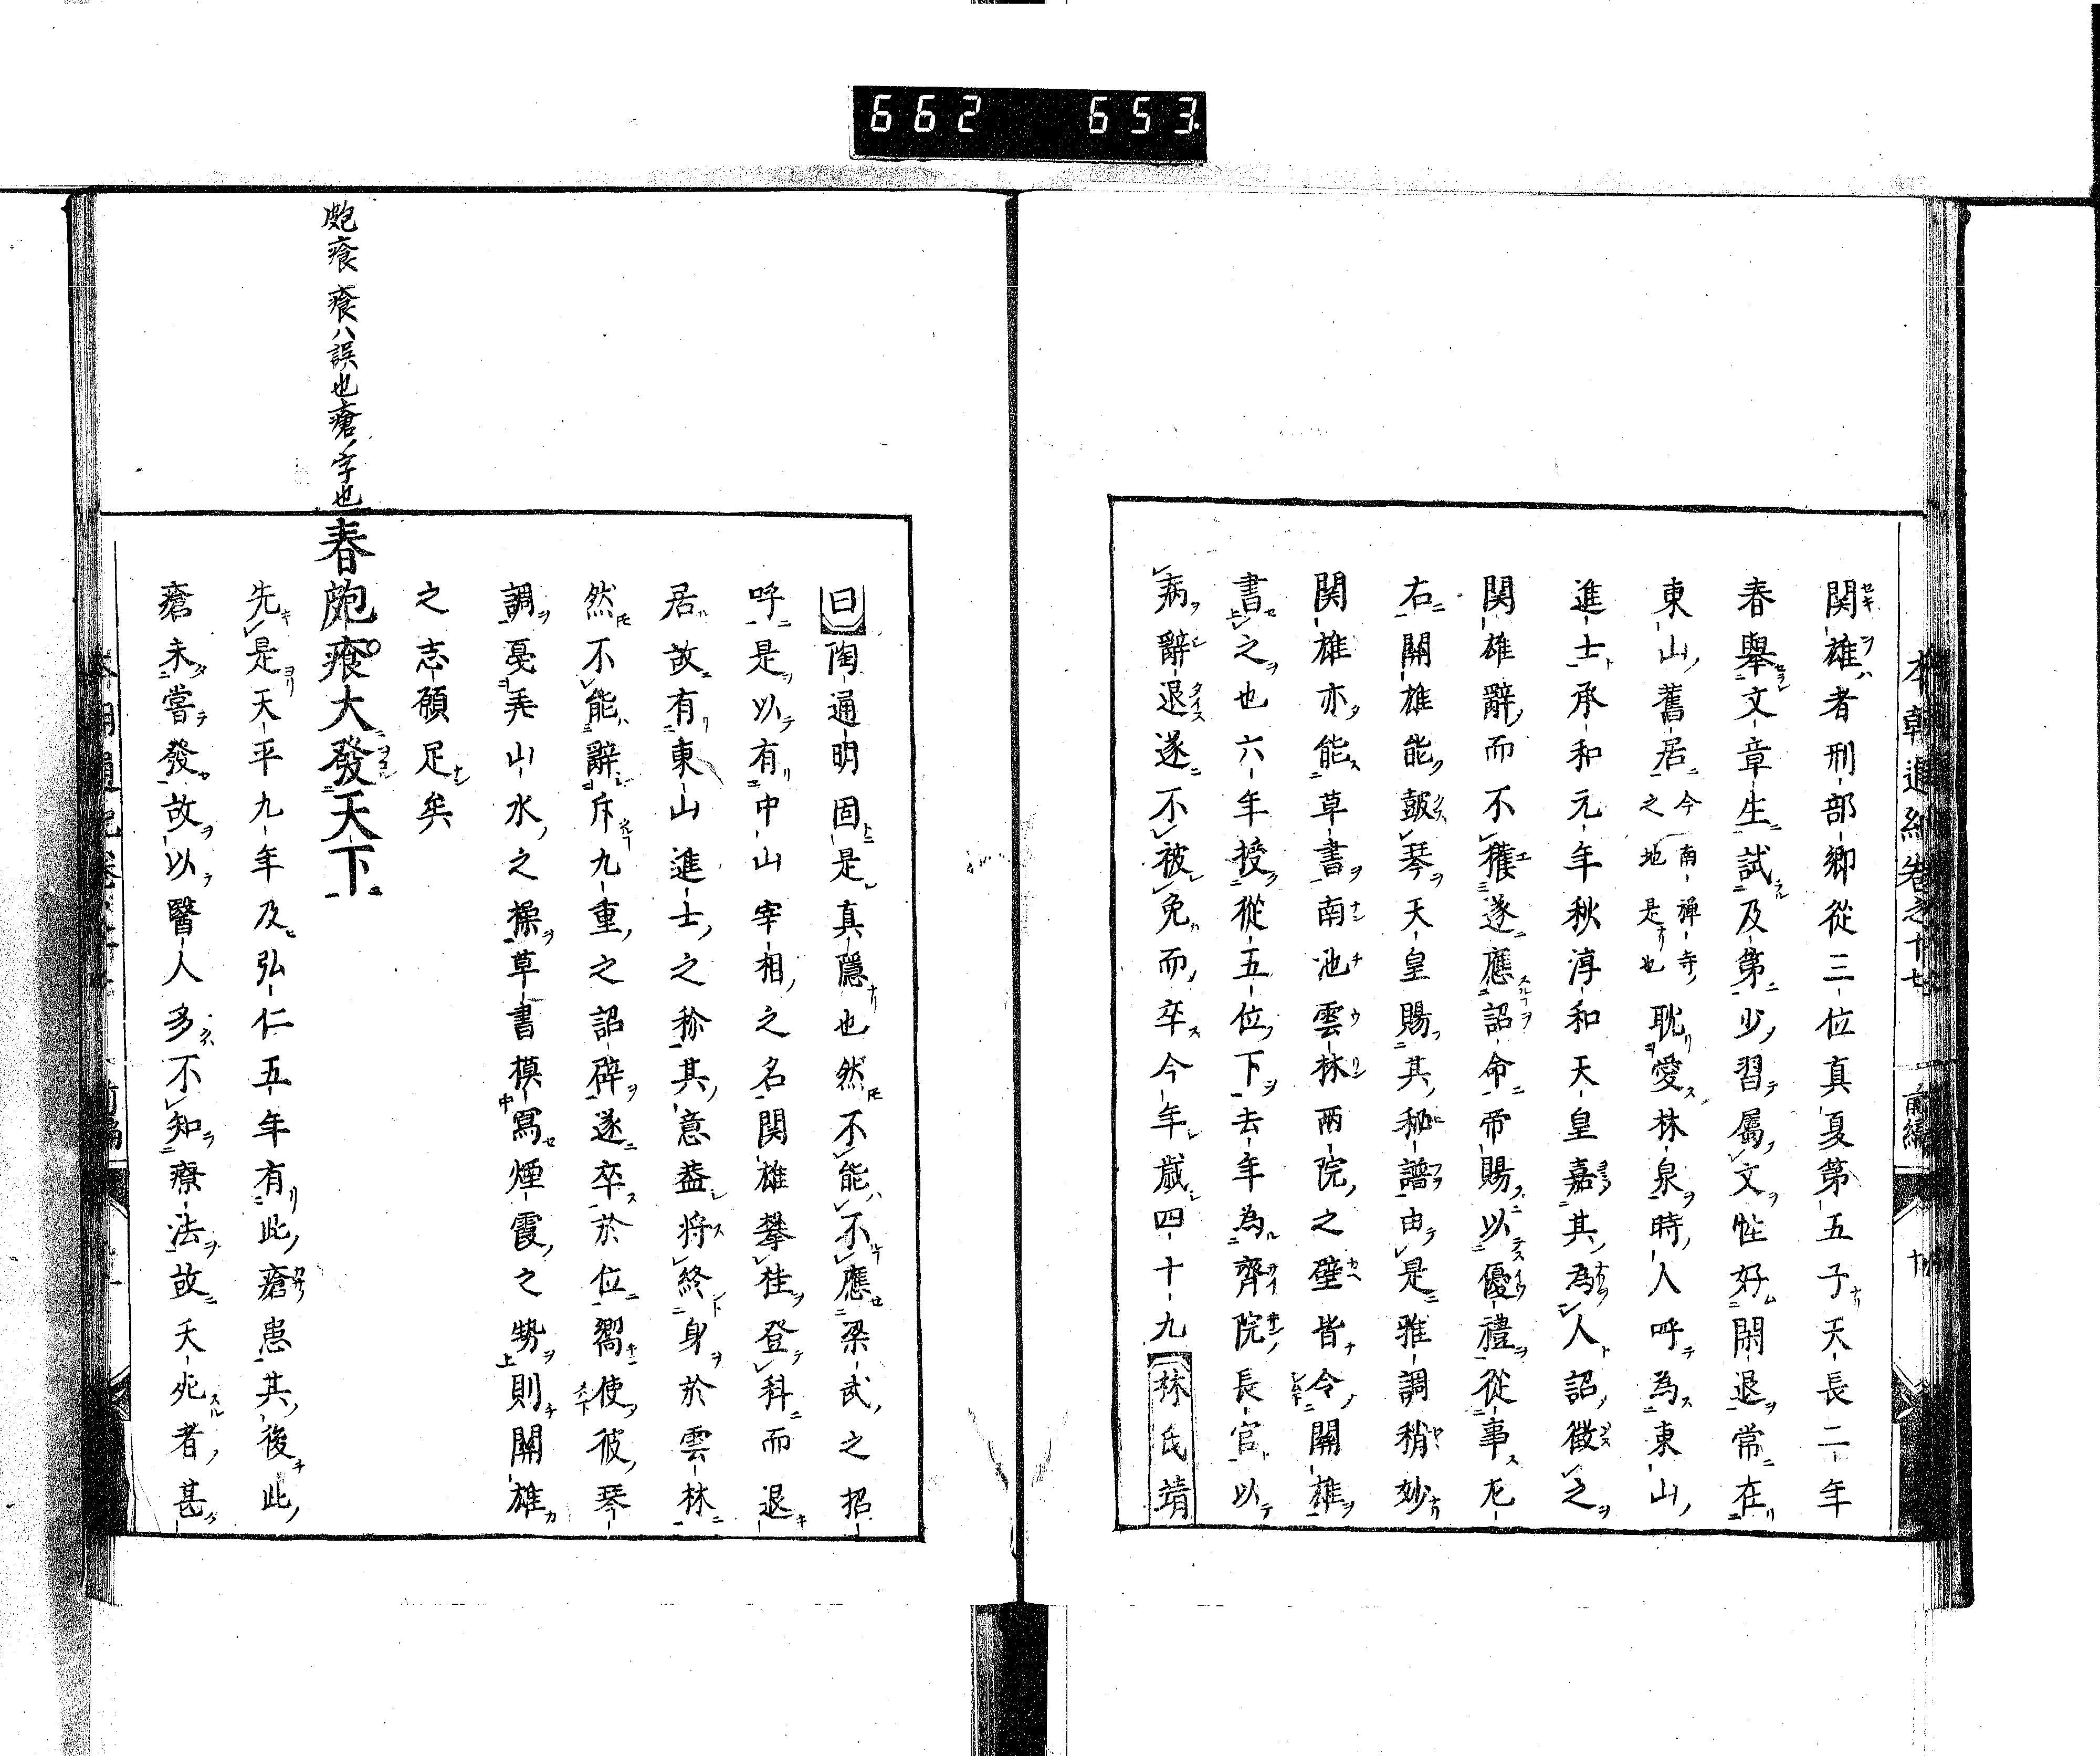 662 653
本朝通紀卷之十七 前編
関雄者刑部卿從三位真夏第五子天長二年
春舉文章生試及第少習屬文性好閑退常在
東山舊居今南禪寺之地是也耽愛林泉時人呼為東山
進士承和元年秋淳和天皇嘉其為人詔徴之
関雄辭而不獲遂應詔命帝賜以優禮從事尤
右関雄能皷琴天皇賜其秘譜由是雅調稍妙
関雄亦能草書南池雲林兩院之壁皆令関雄
書之也六年授從五位下去年為齊院長官以
病辭退遂不被免而卒今年歲四十九林氏靖
曰陶通明固是真隱也然不能不應梁武之招
呼是以有中山宰相之名関雄攀桂登科而退
居故有東山進士之称其意葢将終身於雲林
然不能辭斥九重之詔辟遂卒於位嚮使彼琴
調憂美山水之操草書模寫煙霞之勢則関雄
之志願足矣
春皰瘡大發天下
皰瘡 瘡ハ誤也瘡ノ字也
先是天平九年及弘仁五年有此瘡患其後此
瘡未嘗發故以醫人多不知療法故夭死者甚